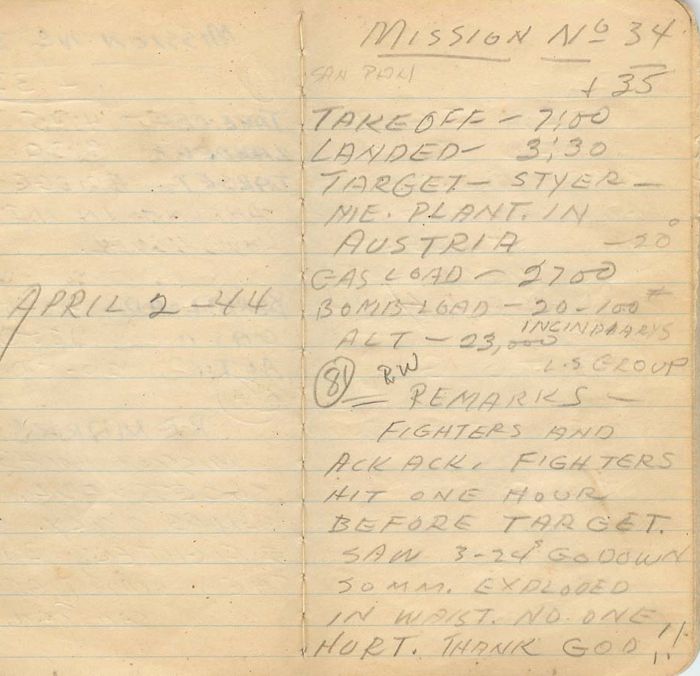 APRIL 2-44
MISSION No 34
SAN PAN
+ 35
TAKEOFF - 7:00
LANDED - 3:30
TARGET - STYER -
ME. PLANT. IN
AUSTRIA -20°
GAS LOAD - 2700
BOMB LOAD - 20-100#
INCINDIARYS
ALT - 23,000
L.S GROUP
81 RW
REMARKS -
FIGHTERS AND
ACK ACK. FIGHTERS
HIT ONE HOUR
BEFORE TARGET.
SAW 3-24s GO DOWN
30 MM. EXPLODED
IN WAIST. NO ONE
HURT. THANK GOD !!